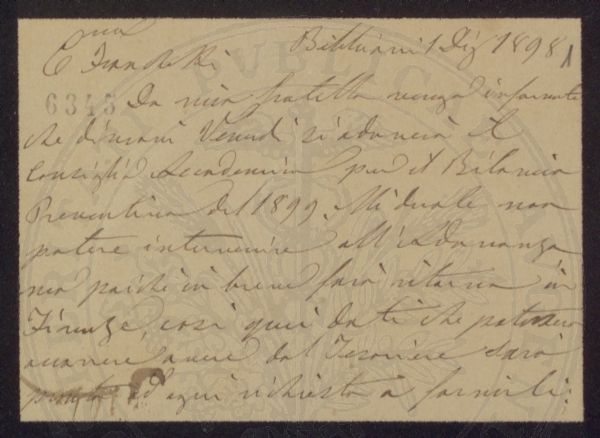 Bibbiani 1 Diz 1898
C Franceschi
6345 Da mia fratello vengo informato
che dimani Venerdi si adunerà il
Consiglio Accademico per il Bilancio
Preventivo del 1899. Mi duole non
potere intervenire all'adunanza
ma poichè in breve farò ritorno in
Firenze, così quei dati che potessero
occorrere avere dal Tesoriere sarò
pronto ad ogni richiesta a fornirli: